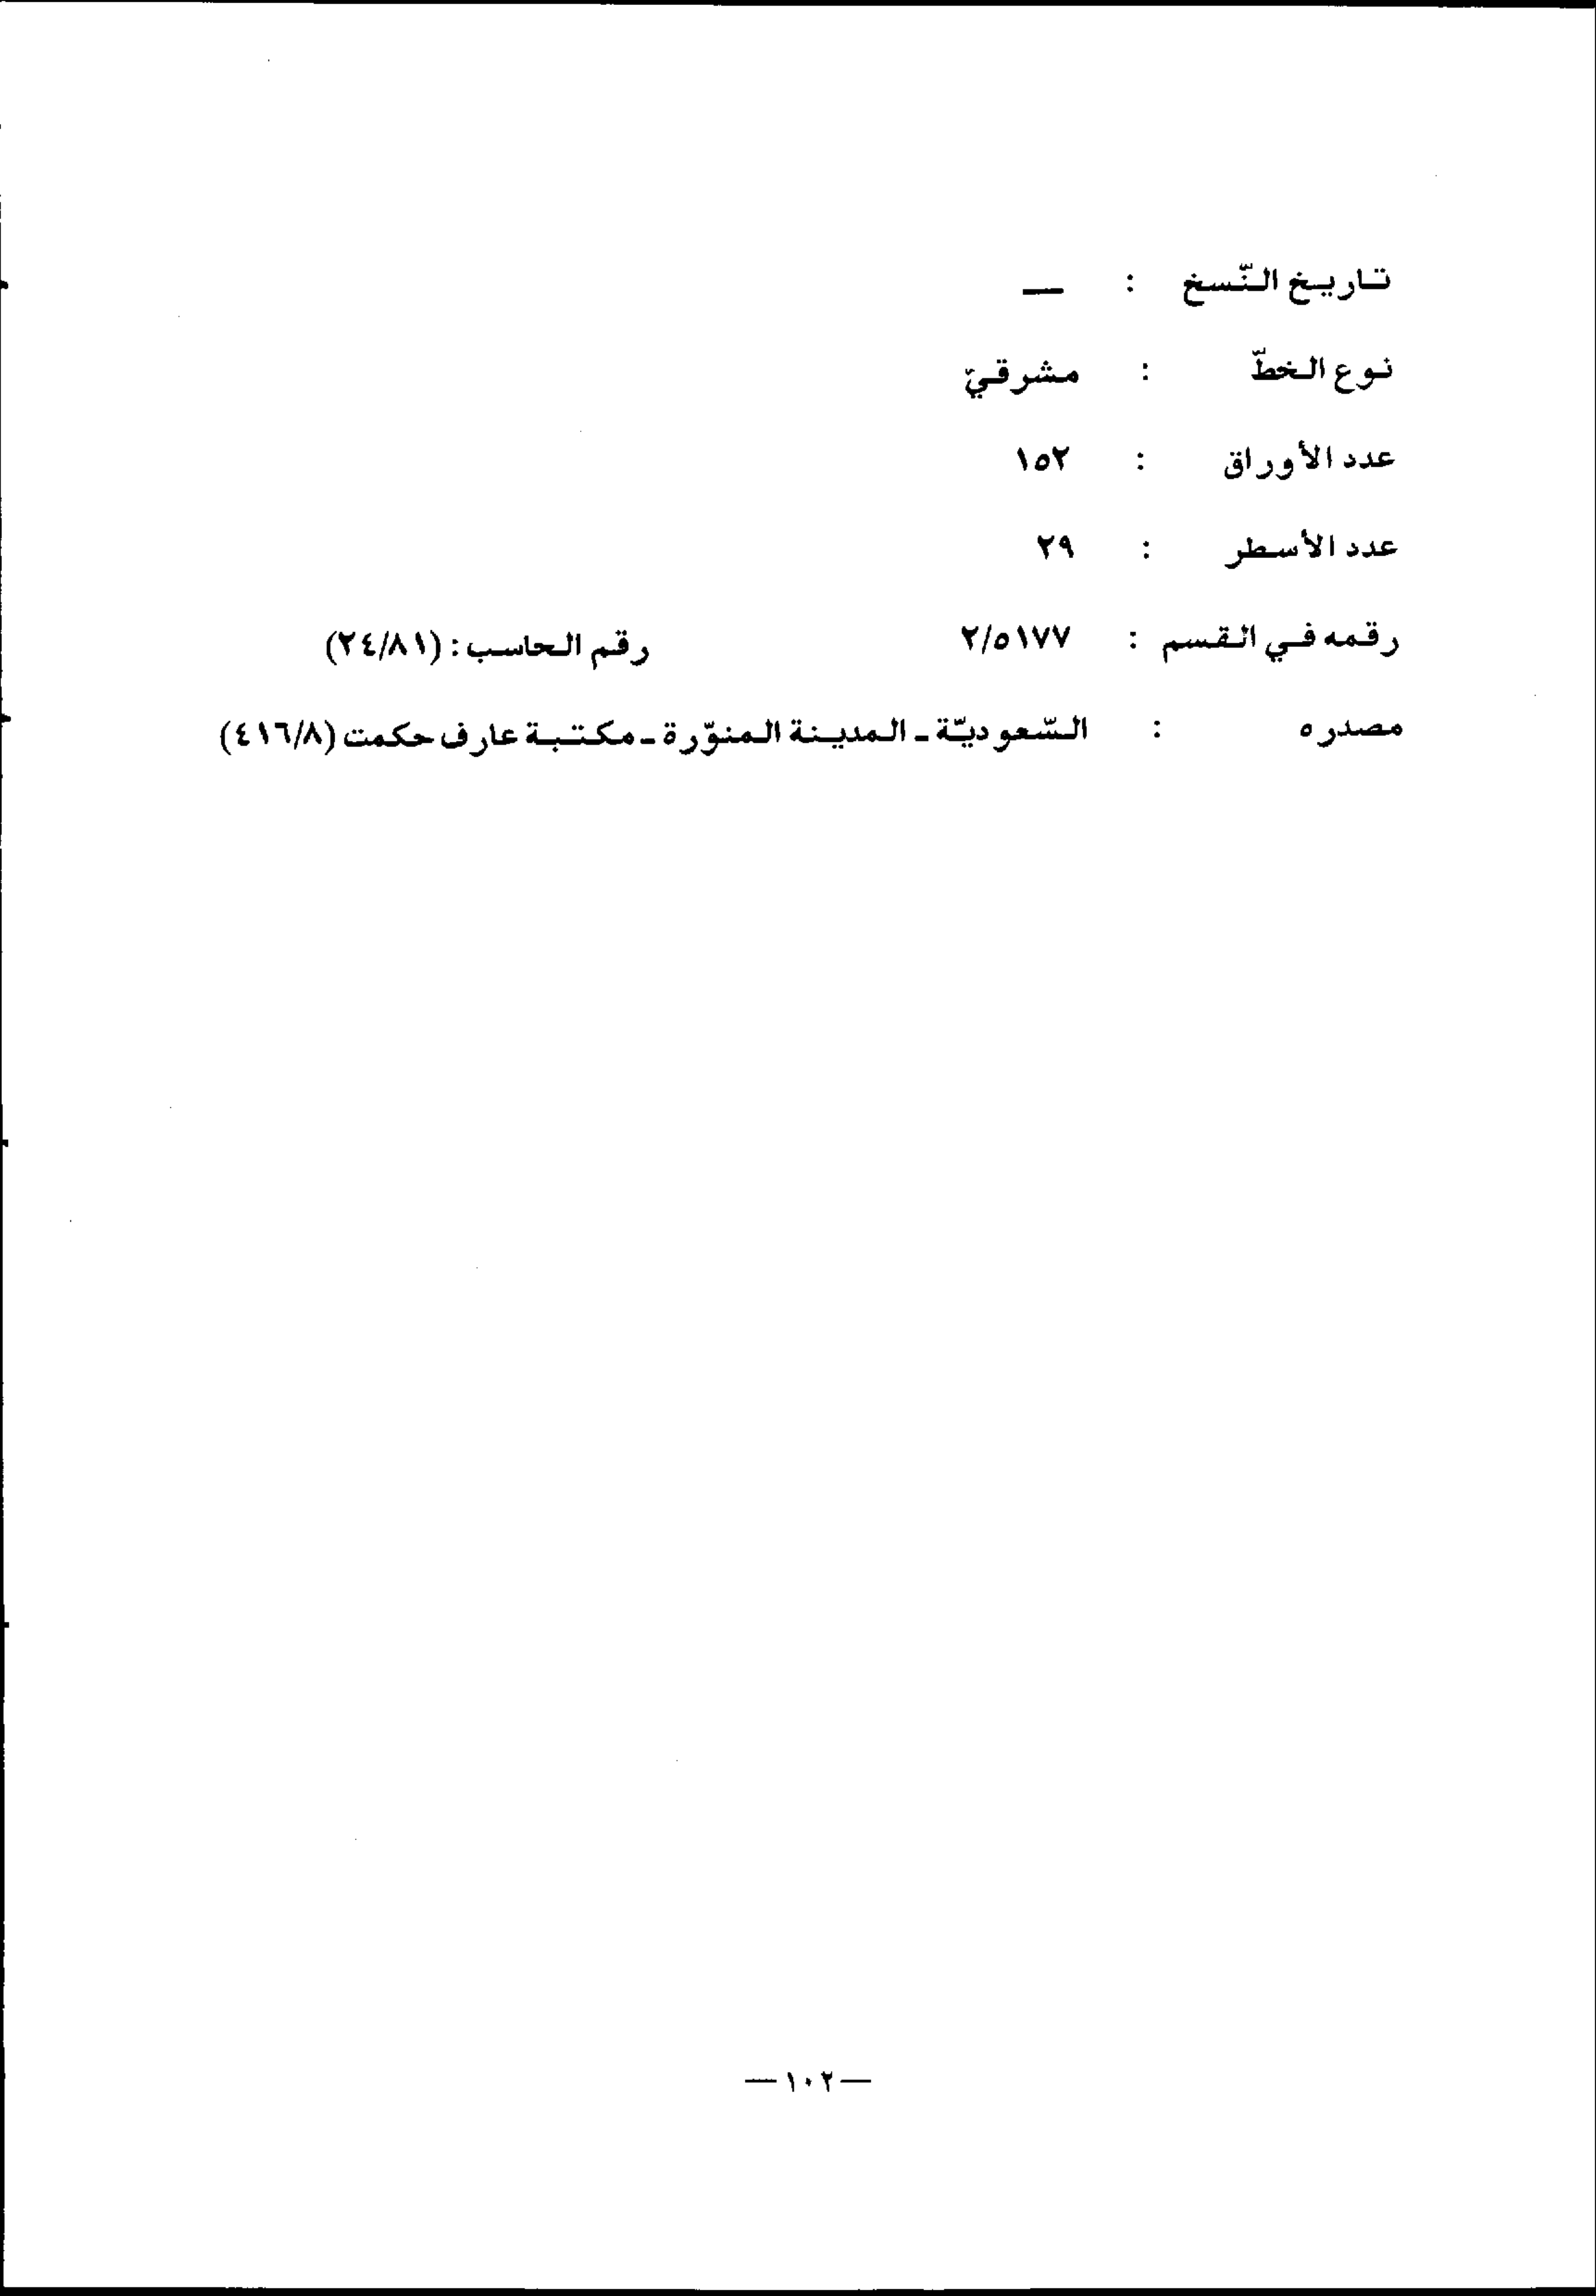 تاريخ النّسخ : —
نوع الخطّ : مشرقيّ
عدد الأوراق : ١٥٢
عدد الأسطر : ٢٩
رقمه في القسم : ٢/٥١٧٧ رقم الحاسب : (٢٤/٨١)
مصدره : السّعوديّة - المدينة المنوّرة - مكتبة عارف حكمت (٤١٦/٨)
— ١٠٢ —